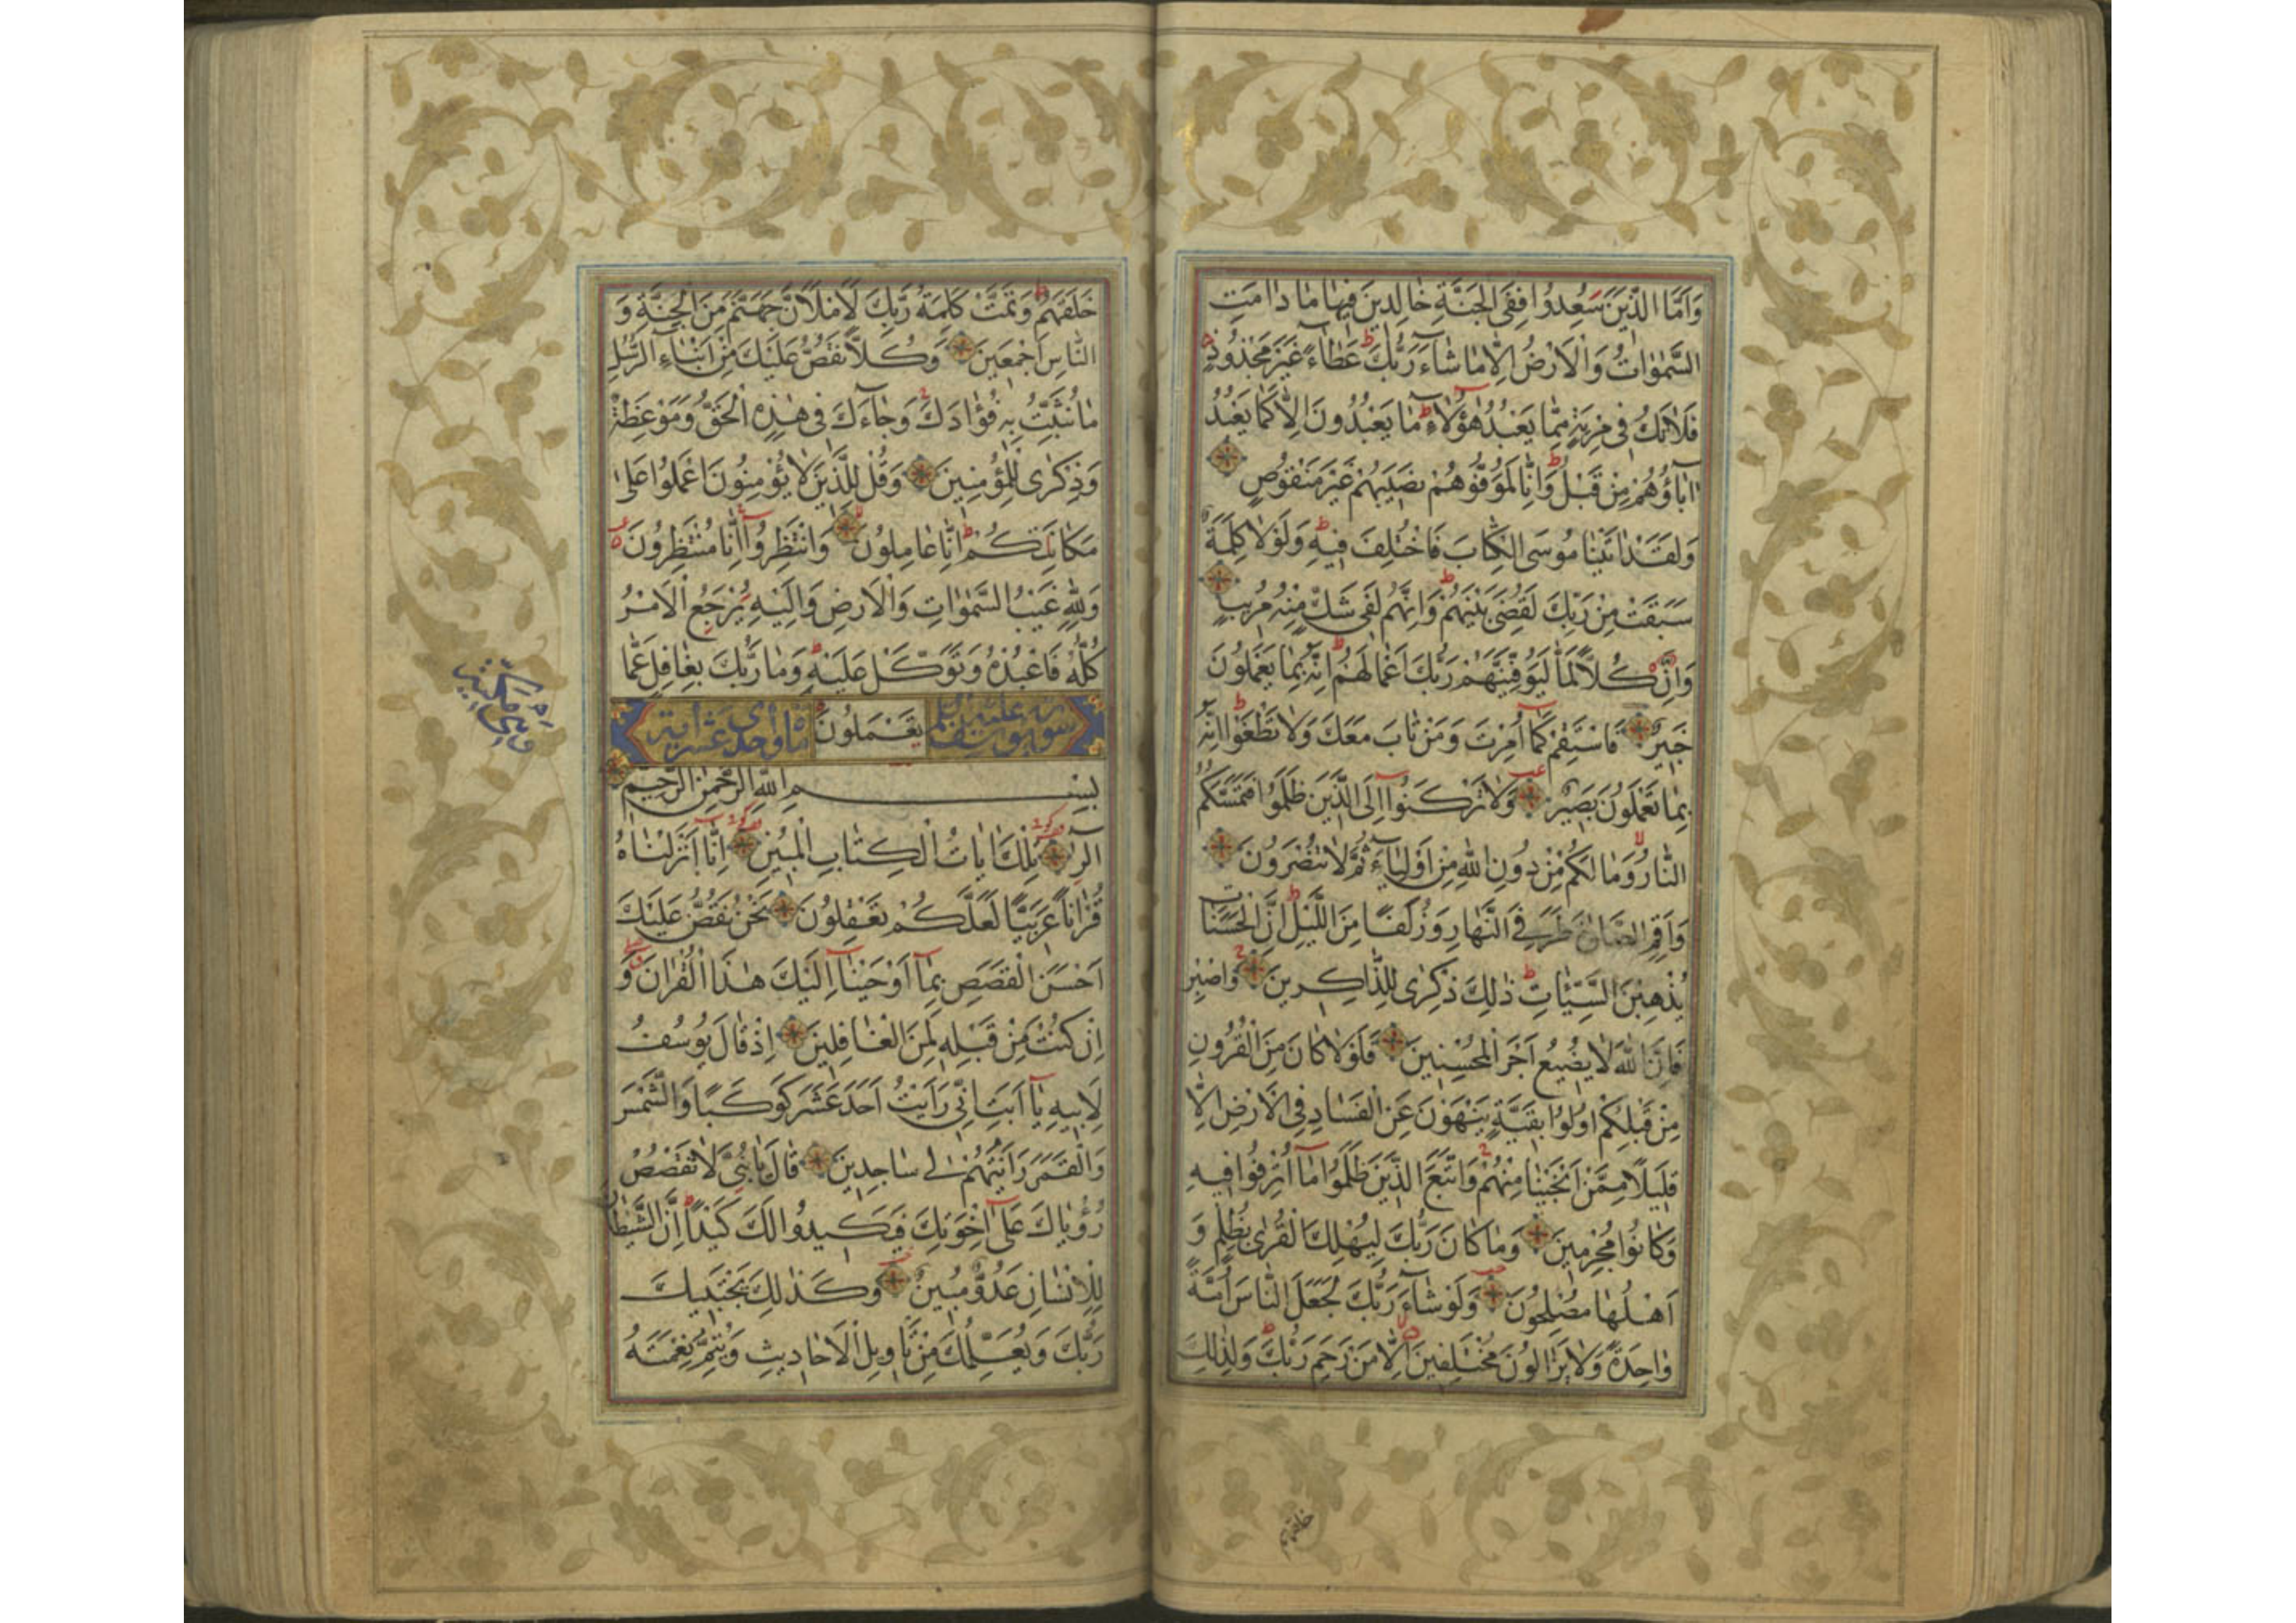 وَاَمَّا الَّذِينَ سُعِدُوا فَفِى الْجَنَّةِ خَالِدِينَ فِيهَا مَا دَامَتِ
السَّمٰوَاتُ وَالْاَرْضُ اِلَّا مَا شَاۤءَ رَبُّكَ عَطَاۤءً غَيْرَ مَجْذُوذٍ
فَلَا تَكُ فِى مِرْيَةٍ مِمَّا يَعْبُدُ هٰؤُلَاۤءِ مَا يَعْبُدُونَ اِلَّا كَمَا يَعْبُدُ
اٰبَاۤؤُهُمْ مِنْ قَبْلُ وَاِنَّا لَمُوَفُّوهُمْ نَصِيبَهُمْ غَيْرَ مَنْقُوصٍ
وَلَقَدْ اٰتَيْنَا مُوسَى الْكِتَابَ فَاخْتُلِفَ فِيهِ وَلَوْلَا كَلِمَةٌ
سَبَقَتْ مِنْ رَبِّكَ لَقُضِىَ بَيْنَهُمْ وَاِنَّهُمْ لَفِى شَكٍّ مِنْهُ مُرِيبٍ
وَاِنَّ كُلًّا لَمَّا لَيُوَفِّيَنَّهُمْ رَبُّكَ اَعْمَالَهُمْ اِنَّهُ بِمَا يَعْمَلُونَ
خَبِيرٌ فَاسْتَقِمْ كَمَاۤ اُمِرْتَ وَمَنْ تَابَ مَعَكَ وَلَا تَطْغَوْا اِنَّهُ
بِمَا تَعْمَلُونَ بَصِيرٌ وَلَا تَرْكَنُوۤا اِلَى الَّذِينَ ظَلَمُوا فَتَمَسَّكُمُ
النَّارُ وَمَا لَكُمْ مِنْ دُونِ اللهِ مِنْ اَوْلِيَاۤءَ ثُمَّ لَا تُنْصَرُونَ
وَاَقِمِ الصَّلٰوةَ طَرَفَىِ النَّهَارِ وَزُلَفًا مِنَ اللَّيْلِ اِنَّ الْحَسَنَاتِ
يُذْهِبْنَ السَّيِّئَاتِ ذٰلِكَ ذِكْرٰى لِلذَّاكِرِينَ وَاصْبِرْ
فَاِنَّ اللهَ لَا يُضِيعُ اَجْرَ الْمُحْسِنِينَ فَلَوْلَا كَانَ مِنَ الْقُرُونِ
مِنْ قَبْلِكُمْ اُولُوا بَقِيَّةٍ يَنْهَوْنَ عَنِ الْفَسَادِ فِى الْاَرْضِ اِلَّا
قَلِيلًا مِمَّنْ اَنْجَيْنَا مِنْهُمْ وَاتَّبَعَ الَّذِينَ ظَلَمُوا مَاۤ اُتْرِفُوا فِيهِ
وَكَانُوا مُجْرِمِينَ وَمَا كَانَ رَبُّكَ لِيُهْلِكَ الْقُرٰى بِظُلْمٍ وَ
اَهْلُهَا مُصْلِحُونَ وَلَوْ شَاۤءَ رَبُّكَ لَجَعَلَ النَّاسَ اُمَّةً
وَاحِدَةً وَلَا يَزَالُونَ مُخْتَلِفِينَ اِلَّا مَنْ رَحِمَ رَبُّكَ وَلِذٰلِكَ
خلقهم
خَلَقَهُمْ وَتَمَّتْ كَلِمَةُ رَبِّكَ لَاَمْلَاَنَّ جَهَنَّمَ مِنَ الْجِنَّةِ وَ
النَّاسِ اَجْمَعِينَ وَكُلًّا نَقُصُّ عَلَيْكَ مِنْ اَنْبَاۤءِ الرُّسُلِ
مَا نُثَبِّتُ بِهِ فُؤٰادَكَ وَجَاۤءَكَ فِى هٰذِهِ الْحَقُّ وَمَوْعِظَةٌ
وَذِكْرٰى لِلْمُؤْمِنِينَ وَقُلْ لِلَّذِينَ لَا يُؤْمِنُونَ اعْمَلُوا عَلٰى
مَكَانَتِكُمْ اِنَّا عَامِلُونَ وَانْتَظِرُوۤا اِنَّا مُنْتَظِرُونَ
وَلِلّٰهِ غَيْبُ السَّمٰوَاتِ وَالْاَرْضِ وَاِلَيْهِ يُرْجَعُ الْاَمْرُ
كُلُّهُ فَاعْبُدْهُ وَتَوَكَّلْ عَلَيْهِ وَمَا رَبُّكَ بِغَافِلٍ عَمَّا
سورة يوسف عليه السلام يَعْمَلُونَ مائة واحدى عشر اية
وهى مكية
بِسْمِ اللهِ الرَّحْمٰنِ الرَّحِيمِ
الۤرٰ تِلْكَ اٰيَاتُ الْكِتَابِ الْمُبِينِ اِنَّاۤ اَنْزَلْنَاهُ
قُرْاٰنًا عَرَبِيًّا لَعَلَّكُمْ تَعْقِلُونَ نَحْنُ نَقُصُّ عَلَيْكَ
اَحْسَنَ الْقَصَصِ بِمَاۤ اَوْحَيْنَاۤ اِلَيْكَ هٰذَا الْقُرْاٰنَ وَ
اِنْ كُنْتَ مِنْ قَبْلِهِ لَمِنَ الْغَافِلِينَ اِذْ قَالَ يُوسُفُ
لِاَبِيهِ يَاۤ اَبَتِ اِنِّى رَاَيْتُ اَحَدَ عَشَرَ كَوْكَبًا وَالشَّمْسَ
وَالْقَمَرَ رَاَيْتُهُمْ لِى سَاجِدِينَ قَالَ يَا بُنَىَّ لَا تَقْصُصْ
رُؤْيَاكَ عَلٰۤى اِخْوَتِكَ فَيَكِيدُوا لَكَ كَيْدًا اِنَّ الشَّيْطَانَ
لِلْاِنْسَانِ عَدُوٌّ مُبِينٌ وَكَذٰلِكَ يَجْتَبِيكَ
رَبُّكَ وَيُعَلِّمُكَ مِنْ تَاْوِيلِ الْاَحَادِيثِ وَيُتِمُّ نِعْمَتَهُ